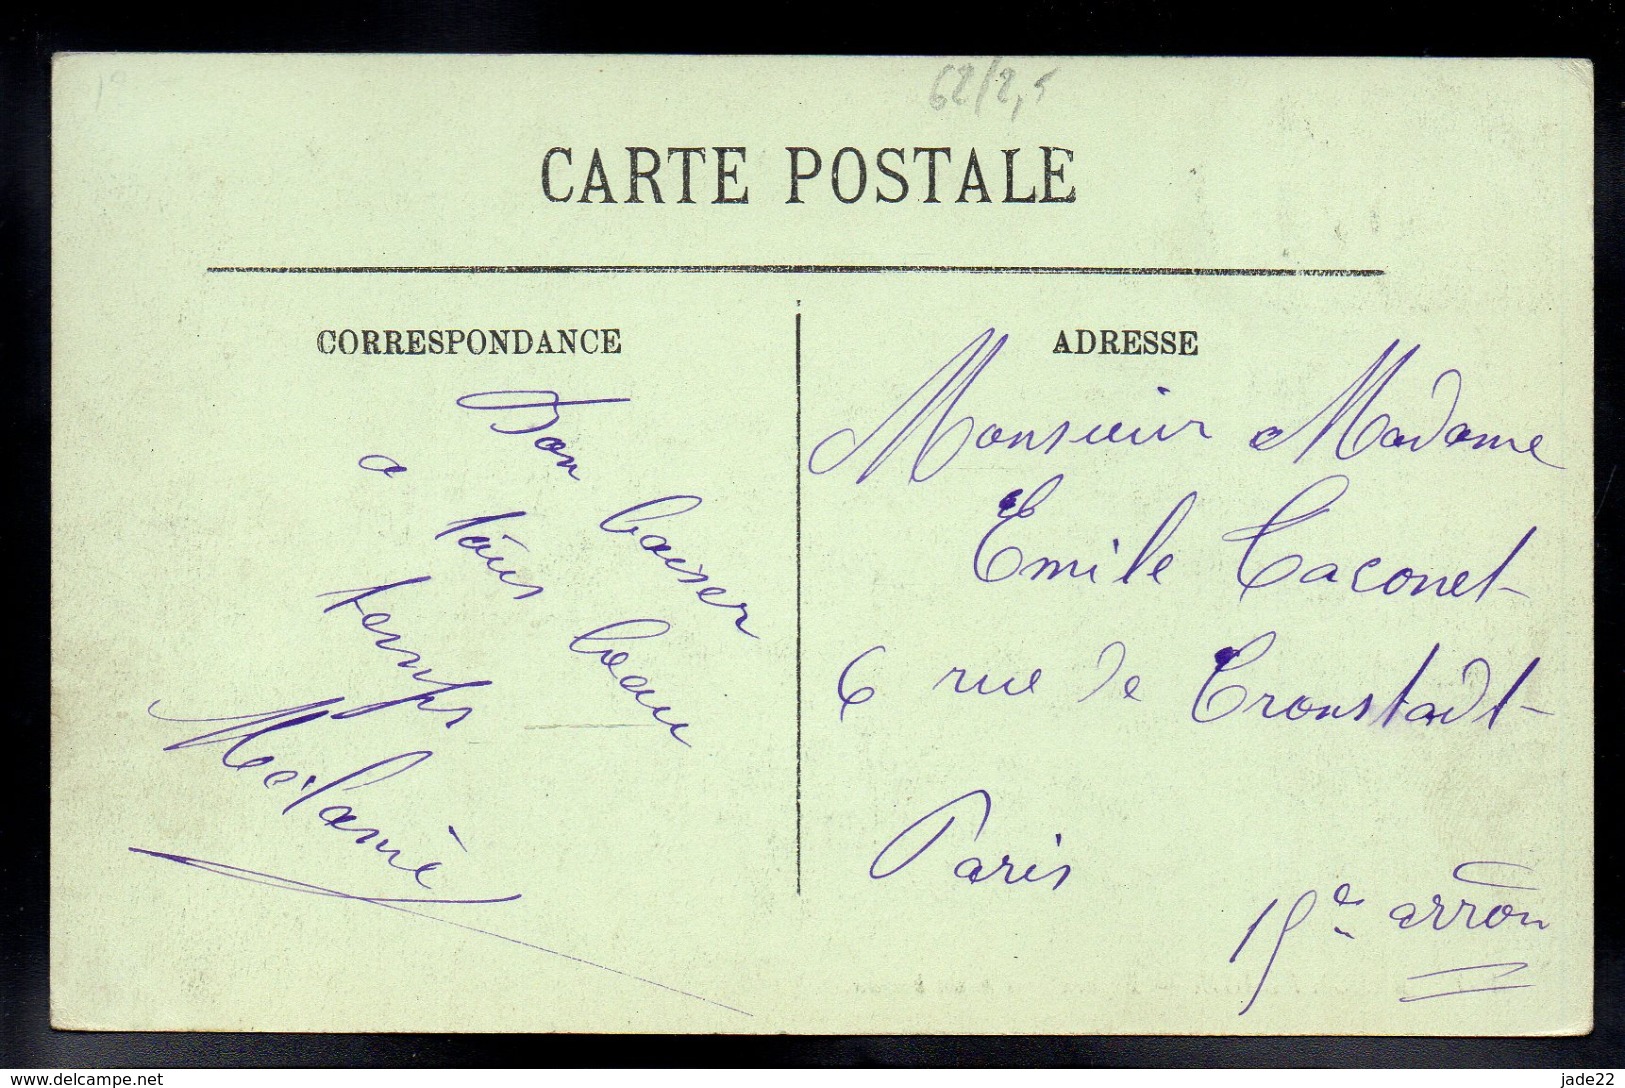 62/2,5
CARTE POSTALE
CORRESPONDANCE
ADRESSE
Bon baiser
a tous beau
temps
Melanie
Monsieur Madame
Emile Taconet
6 rue de Cronstadt
Paris
15e arron
www.delcampe.net
jade22